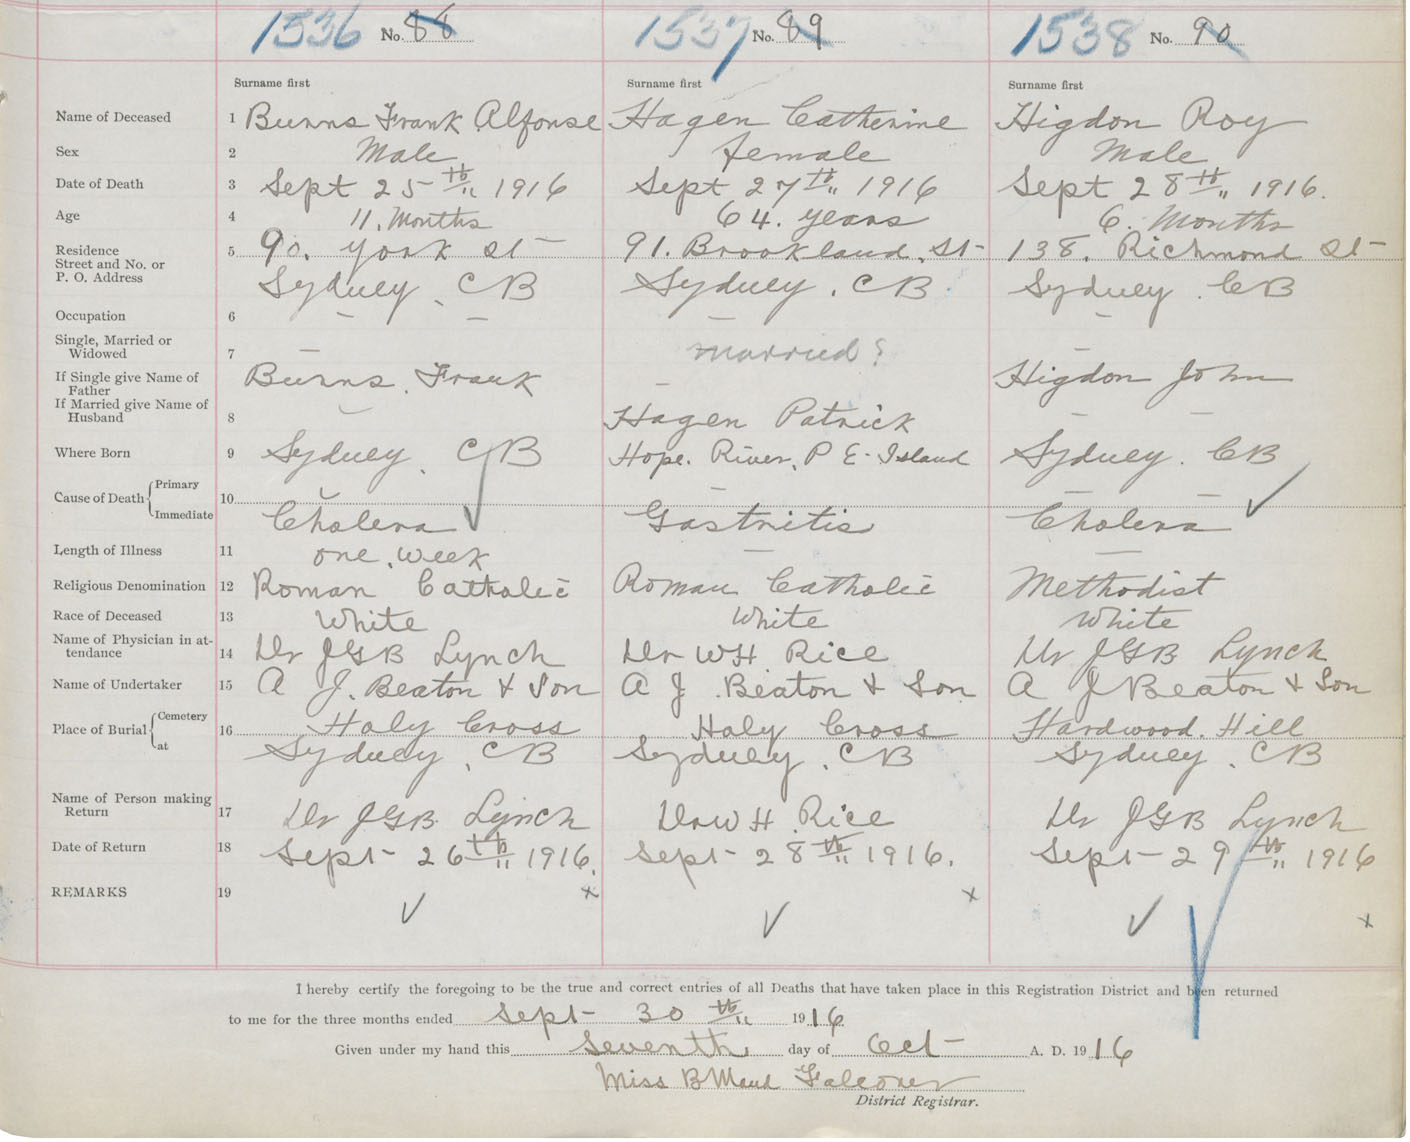 1536 No. 88 1537 No. 89 1538 No. 90
Surname first Surname first Surname first
Name of Deceased 1 Burns Frank Alfonse Hagen Catherine Higdon Roy
Sex 2 Male female Male
Date of Death 3 Sept 25th 1916 Sept 27th 1916 Sept 28th 1916.
Age 4 11. Months 64. years 6. Months
Residence 5 90. york st 91. Brookland. St 138. Richmond St
Street and No. or
P. O. Address Sydney, CB Sydney. CB Sydney. CB
Occupation 6 — — — —
Single, Married or
Widowed 7 — married? —
If Single give Name of
Father Burns. Frank — Higdon John
If Married give Name of
Husband 8 Hagen Patrick — —
Where Born 9 Sydney. CB Hope. River. P E. Island Sydney. CB
Cause of Death { Primary 10 — — —
Immediate Cholera Gastritis Cholera
Length of Illness 11 one. week — —
Religious Denomination 12 Roman Catholic Roman Catholic Methodist
Race of Deceased 13 White White White
Name of Physician in at-
tendance 14 Dr JGB Lynch Dr WH. Rice Dr JGB Lynch
Name of Undertaker 15 A J. Beaton & Son A J. Beaton & Son A J Beaton & Son
Place of Burial { Cemetery 16 Holy Cross Holy Cross Hardwood. Hill
at Sydney, CB Sydney. CB Sydney. CB
Name of Person making
Return 17 Dr JGB Lynch Dr W H. Rice Dr JGB Lynch
Date of Return 18 Sept- 26th 1916. Sept- 28th 1916. Sept- 29th 1916
REMARKS 19 ✓ x ✓ x ✓ x
I hereby certify the foregoing to be the true and correct entries of all Deaths that have taken place in this Registration District and been returned
to me for the three months ended Sept- 30th 1916
Given under my hand this Seventh day of Oct- A. D. 1916
Miss B Maud Falconer
District Registrar.